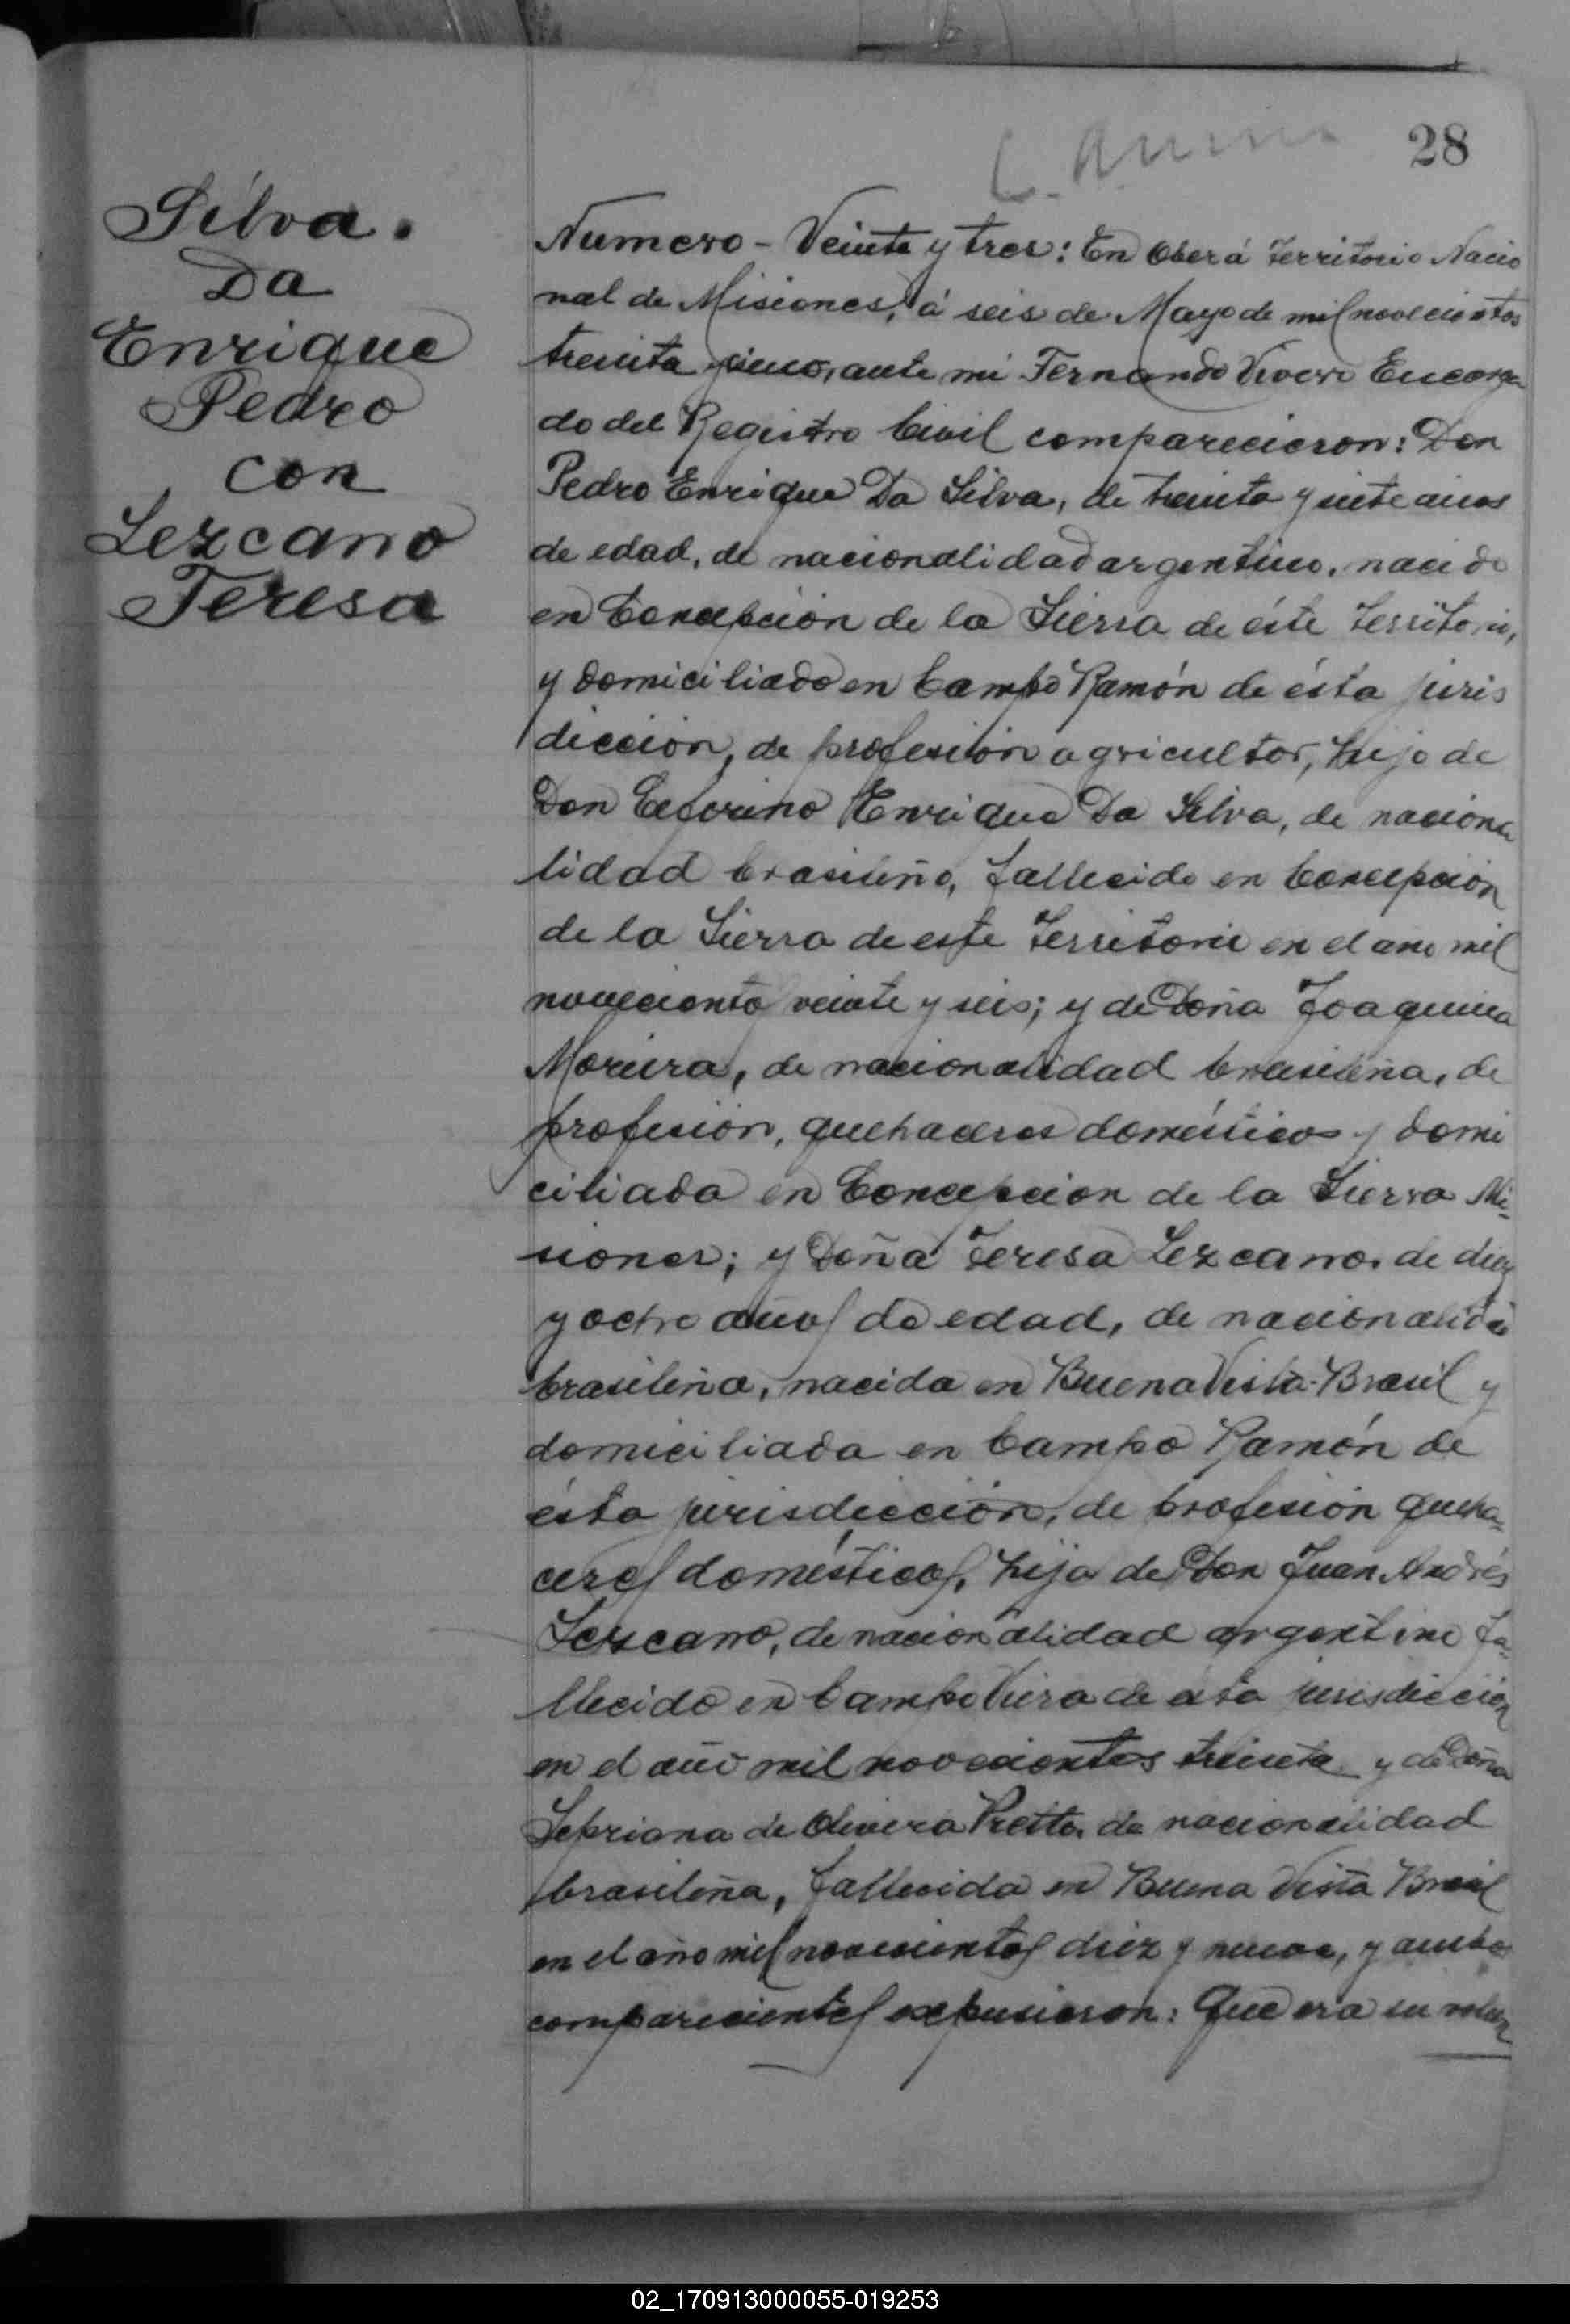 28
Silva.
Da
Enrique
Pedro
con
Lezcano
Teresa
Numero - Veinte y tres: En Oberá Territorio Nacio
nal de Misiones, á seis de Mayo de mil novecientos
treinta y cinco, ante mi Fernando Vivero Encarga
do del Registro Civil comparecieron: Don
Pedro Enrique Da Silva, de treinta y siete años
de edad, de nacionalidad argentino, nacido
en Concepción de la Sierra de éste Territorio,
y domiciliado en Campo Ramón de ésta juris
dicción, de profesión agricultor, hijo de
Don Ceferino Enrique Da Silva, de naciona
lidad brasileño, fallecido en Concepción
de la Sierra de este Territorio en el año mil
novecientos veinte y seis; y de Doña Joaquina
Moreira, de nacionalidad brasileña, de
profesión, quehaceres domésticos y domi
ciliada en Concepcion de la Sierra Mi-
siones; y Doña Teresa Lezcano, de diez
y ocho años de edad, de nacionalidad
brasileña, nacida en Buena Vista-Brasil y
domiciliada en Campo Ramón de
ésta jurisdicción, de profesión queha-
ceres domésticos, hija de Don Juan Andrés
Lezcano, de nacionalidad argentino fa-
llecido en Campo Viera de ésta jurisdicción
en el año mil novecientos treinta y de Doña
Sepriana de Olivera Pretto, de nacionalidad
brasileña, fallecida en Buena Vista Brasil
en el año mil novecientos diez y nueve, y ambos
comparecientes expusieron: Que era su volun
02_170913000055-019253